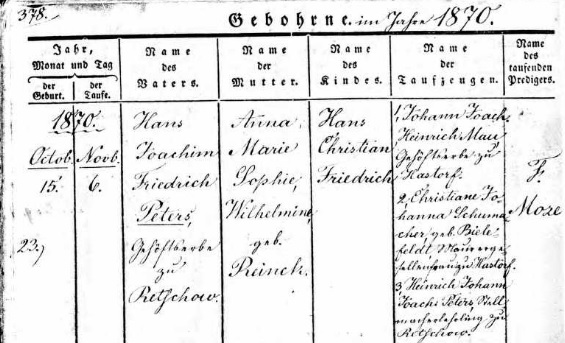 378.
Gebohrne im Jahre 1870.
Jahr,
Monat und Tag
der
Geburt.
der
Taufe.
Name
des
Vaters.
Name
der
Mutter.
Name
des
Kindes.
Name
der
Taufzeugen.
Name
des
taufenden
Predigers.
1870.
Octob.
15.
Novb.
6.
23.)
Hans
Joachim
Friedrich
Peters,
Gehöftserbe
zu
Retschow.
Anna
Marie
Sophie,
Wilhelmine,
geb.
Reinck.
Hans
Christian
Friedrich
1, Johann Joach.
Heinrich Mau
Gehöftserbe zu
Hastorf.
2, Christiane Jo-
hanna Schuma-
cher, geb. Biele-
feldt, Maurerge-
sellenfrau zu Hastorf.
3, Heinrich Johann
Joach. Peters, Stell-
macherlehrling zu
Retschow.
F.
Moze